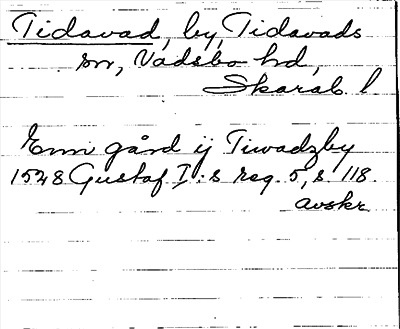 Tidavad, by, Tidavads
sn, Vadsbo hd,
Skarab. l
Enn gård ij Tiwadzby
1528 Gustaf I:s reg. 5, s. 118.
avskr.